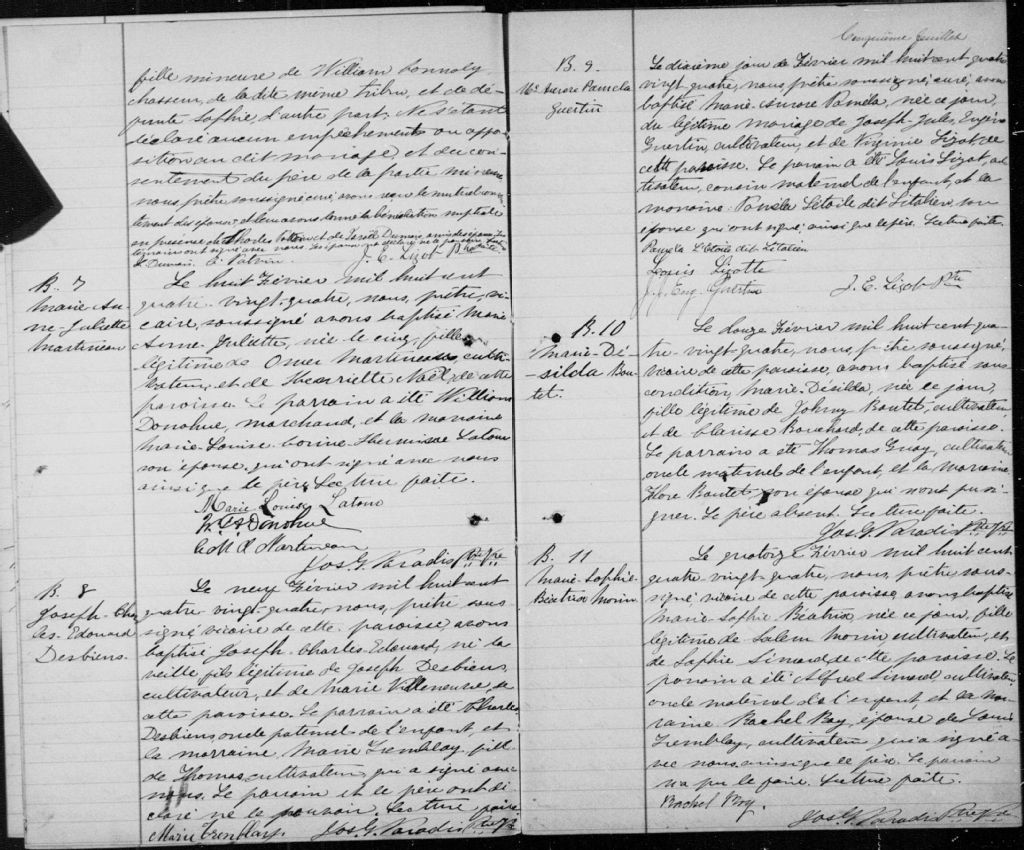 fille mineure de William Connoly,
chasseur, de la dite même tribu, et de dé-
funte Sophie, d'autre part; Ne s'étant
déclaré aucun empêchements ou oppo-
sition au dit mariage, et du con-
sentement du père de la partie mineure
nous, prêtre soussigné curé, avons reçu le mutuel consen-
tement des époux et leur avons donné la bénédiction nuptiale
en présence de Charles et de Israël Dumais amis des époux
J. E. Lizot Ptre
B. 7
Marie An-
ne Juliette
Martineau
Le huit Février mil huit cent
quatre-vingt-quatre, nous, prêtre, vi-
caire, soussigné avons baptisé Marie
Anne Juliette, née le cinq, fille
légitime de Omer Martineau, culti-
vateur, et de Henriette Noël, de cette
paroisse. Le parrain a été William
Donohue, marchand, et la marraine
Marie-Louise-Corine-Hermisse Latour
son épouse, qui ont signé avec nous
ainsi que le père. Lecture faite.
Marie Louise Latour
W. Donohue
Martineau
Jos. G. Paradis Ptre Vre
B. 8
Joseph-Char
les-Edouard
Desbiens.
Le neuf Février mil huit cent
quatre-vingt-quatre, nous, prêtre sous-
signé vicaire de cette paroisse avons
baptisé Joseph-Charles-Edouard, né la
veille fils légitime de Joseph Desbiens,
cultivateur, et de Marie Villeneuve, de
cette paroisse. Le parrain a été Charles
Desbiens oncle paternel de l'enfant, et
la marraine Marie Tremblay, fille
de Thomas, cultivateur, qui a signé avec
nous. Le parrain et le père ont dé-
claré ne le pouvoir. Lecture faite
Marie Tremblay.
Jos. G. Paradis Ptre Vre
Cinquième feuillet
B. 9
Me Aurore Pamela
Guertin
Le dixième jour de Février mil huit cent quatre
vingt quatre, nous, prêtre soussigné, curé, avons
baptisé Marie-Aurore Paméla, née ce jour,
du légitime mariage de Joseph-Jules, Eugène
Guertin, cultivateur, et de Virginie Lizot, de
cette paroisse. Le parrain a été Louis Lizot, cul
tivateur, cousin maternel de l'enfant, et la
marraine Paméla Létoile dit Litalien, son
épouse qui ont signé, ainsi que le père. Lecture faite.
Pamela L'Etoile dit Litalien
Louis Lizotte
J. J. Eug. Guertin
J. E. Lizot Ptre
B. 10
Marie-Dé-
-silda Bou-
tet.
Le douze Février mil huit cent qua-
tre-vingt-quatre, nous, prêtre soussigné,
vicaire de cette paroisse, avons baptisé sous
condition, Marie-Désilda, née ce jour,
fille légitime de Johny Boutet, cultivateur
et de Clarisse Bouchard, de cette paroisse.
Le parrain a été Thomas Guay, cultivateur
oncle maternel de l'enfant, et la marraine
Flore Boutet, son épouse qui n'ont pu si-
gner. Le père absent. Lecture faite.
Jos. G. Paradis Ptre Vre
B. 11
Marie-Sophie-
Béatrix Morin
Le quatorze Février mil huit cent
quatre-vingt-quatre, nous, prêtre sous-
signé vicaire de cette paroisse, avons baptisé
Marie-Sophie Béatrix, née ce jour, fille
légitime de Salem Morin cultivateur, et
de Sophie Simard, de cette paroisse. Le
parrain a été Alfred Simard cultivateur,
oncle maternel de l'enfant et la mar-
raine Rachel Roy, épouse de Louis
Tremblay, cultivateur qui a signé a-
vec nous ainsi que le père. Le parrain
n'a pu le faire. Lecture faite.
Rachel Roy.
Jos. G. Paradis Ptre Vre